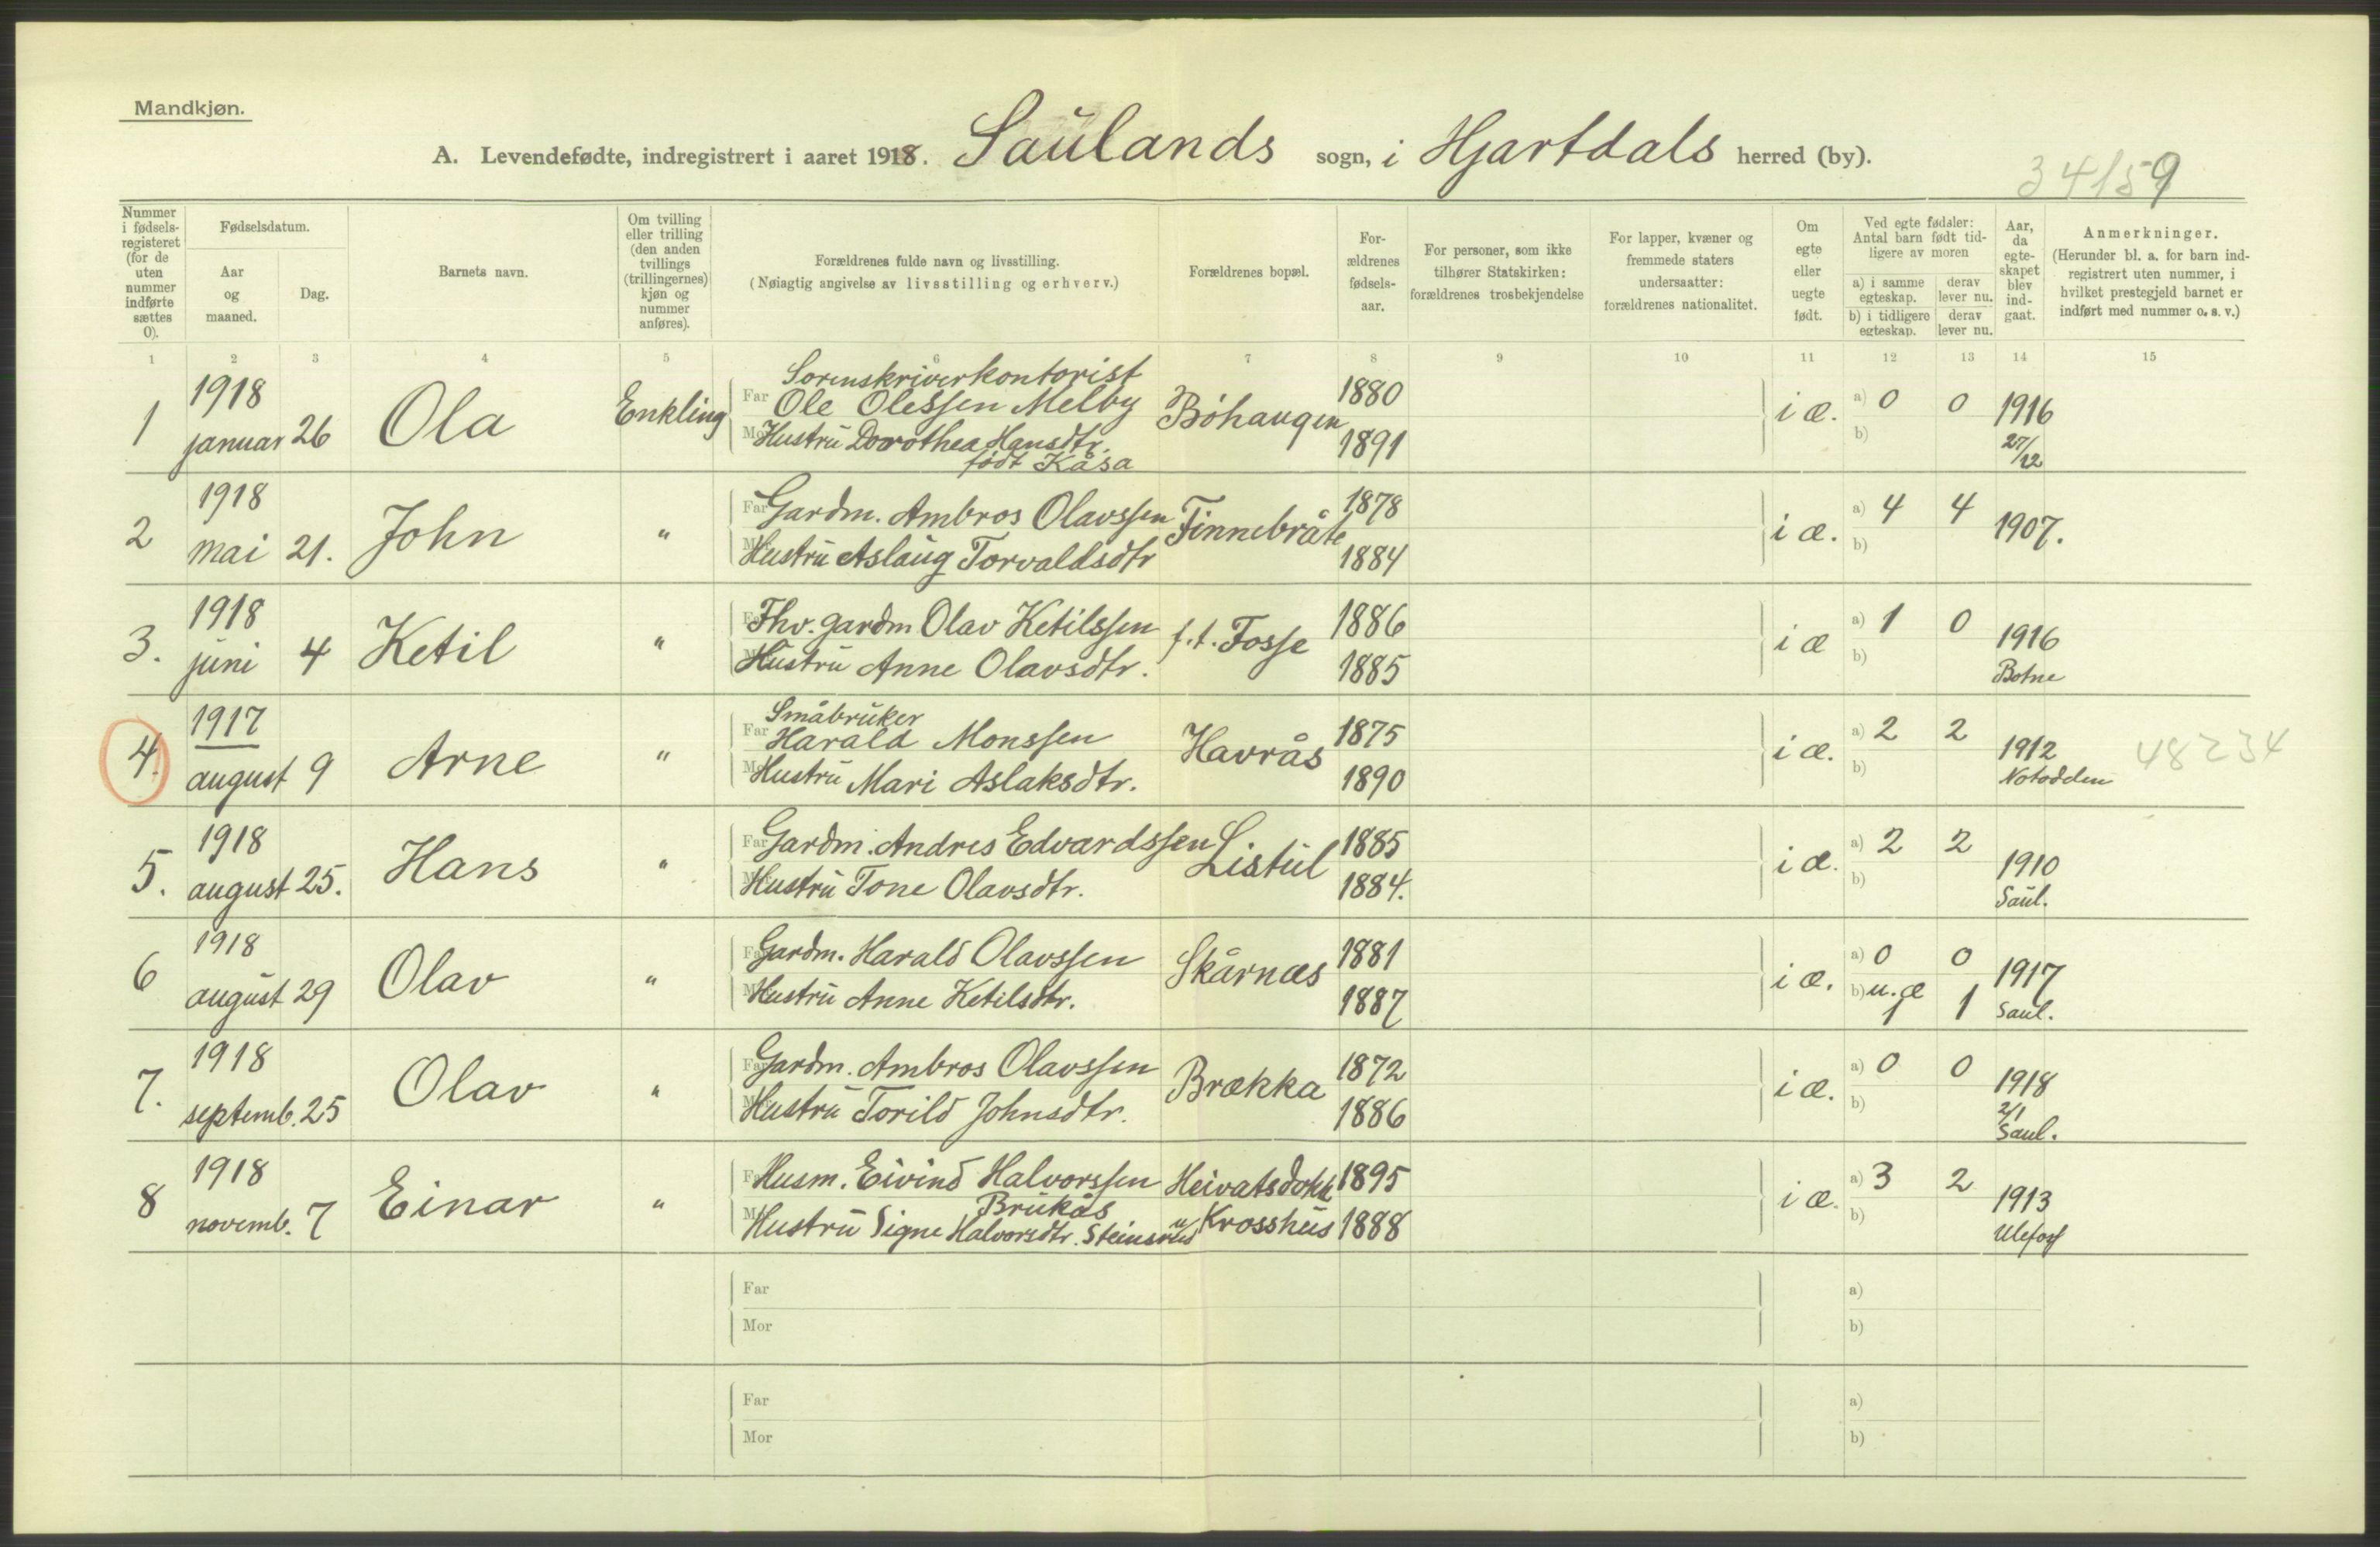 Mandkjøn.
A. Levendefødte, indregistrert i aaret 1918. Saulands sogn, i Hjartdals herred (by).
34159
Nummer i fødsels-registeret (for de uten nummer indførte sættes 0).
Fødselsdatum.
Aar og maaned.
Dag.
Barnets navn.
Om tvilling eller trilling (den anden tvillings (trillingernes) kjøn og nummer anføres).
Forældrenes fulde navn og livsstilling.
(Nøiagtig angivelse av livsstilling og erhverv.)
Forældrenes bopæl.
For-ældrenes fødsels-aar.
For personer, som ikke tilhører Statskirken: forældrenes trosbekjendelse
For lapper, kvæner og fremmede staters undersaatter: forældrenes nationalitet.
Om egte eller uegte født.
Ved egte fødsler: Antal barn født tid-ligere av moren
a) i samme egteskap. derav lever nu.
b) i tidligere egteskap. derav lever nu.
Aar, da egte-skapet blev ind-gaat.
Anmerkninger.
(Herunder bl. a. for barn ind-registrert uten nummer, i hvilket prestegjeld barnet er indført med nummer o. s. v.)
1 2 3 4 5 6 7 8 9 10 11 12 13 14 15
1 1918 januar 26 Ola Enkling
Sorenskriverkontorist
Far Ole Olessen Melby Böhaugen 1880
Mor Hustru Dorothea Hansdtr. født Kåsa 1891
i æ. a) 0 0 b) 1916 27/12
2 1918 mai 21. John "
Far Gardm. Ambros Olavssen Finnebråte 1878
Hustru Aslaug Torvaldsdtr 1884
i æ. a) 4 4 b) 1907.
3. 1918 juni 4 Ketil "
Fhv. gardm Olav Ketilssen f.t. Fosse 1886
Hustru Anne Olavsdtr. 1885
i æ a) 1 0 b) 1916 Botne
4. 1917 august 9 Arne "
Småbruker
Far Harald Monssen Havrås 1875
Mor Hustru Mari Aslaksdtr. 1890
i æ. a) 2 2 b) 1912 Notodden 48234
5. 1918 august 25. Hans "
Far Gardm. Andres Edvardssen Listul 1885
Hustru Tone Olavsdtr. 1884.
i æ. a) 2 2 b) 1910 Saul.
6 1918 august 29 Olav "
Gardm. Harald Olavssen Skårnæs 1881
Hustru Anne Ketilsdtr. 1887
i æ. a) 0 0 b) u. æ 1 1 1917 Saul.
7. 1918 septemb. 25 Olav "
Gardm. Ambros Olavssen Brækka 1872
Hustru Torild Johnsdtr. 1886
i æ. a) 0 0 b) 1918 2/1 Saul.
8 1918 novemb. 7 Einar "
Husm. Eivind Halvorssen Brukås 1895
Hustru Signe Halvorsdtr. Krosshus 1888
i æ. a) 3 2 b) 1913
Far a)
Mor b)
Far a)
Mor b)